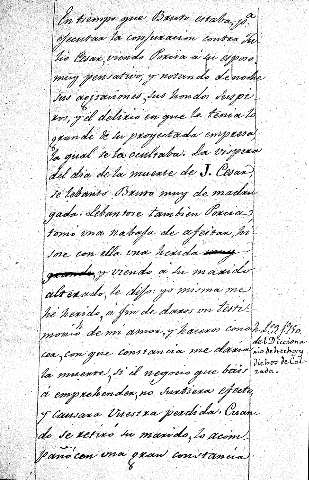 En tiempo que Bruto estaba pa
ejecutar la conjuracion contra Ju-
lio Cesar, viendo Porcia a su esposo
muy pensativo, y notando de noche
sus agitaciones, sus hondos suspi-
ros, y el delirio en que la tenia lo
grande de su proyectada empresa
la qual se la ocultaba. La vispera
del dia de la muerte de J. Cesar,
se lebantó Bruto muy de madru-
gada. Lebantose tambien Porcia,
tomó una nabaja de afeitar, hi-
zose con ella una herida muy
grande, y viendo a su marido
alterado, le dijo: yo misma me
he herido, á fin de daros un testi-
monio de mi amor, y haceros cono-
cer, con que constancia me daria
la muerte, si el negocio que bais
á emprehender, no surtiera efecto
y causara vuestra perdida. Cuan-
do se retiró su marido, lo acom-
pañó con una gran constancia
del Dicciona-
rio de hechos y
dichos de